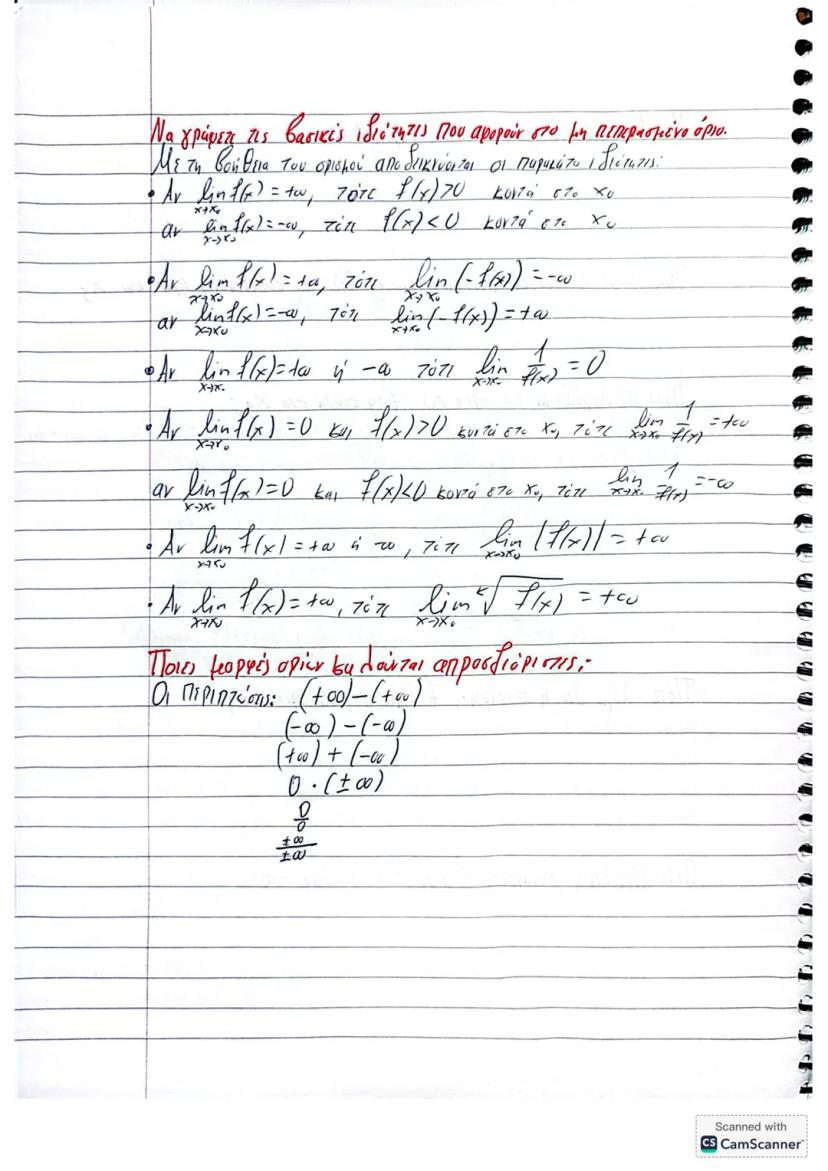 Να γράψετε τις βασικές ιδιότητες που αφορούν στο μη πεπερασμένο όριο.
Με τη βοήθεια του ορισμού αποδεικνύονται οι παρακάτω ιδιότητες:
• Αν lim x→x₀ f(x) = +∞, τότε f(x)>0 κοντά στο x₀
αν lim x→x₀ f(x) = -∞, τότε f(x)<0 κοντά στο x₀
• Αν lim x→x₀ f(x) = +∞, τότε lim x→x₀ (-f(x)) = -∞
αν lim x→x₀ f(x) = -∞, τότε lim x→x₀ (-f(x)) = +∞
• Αν lim x→x₀ f(x) = +∞ ή -∞ τότε lim x→x₀ 1/f(x) = 0
• Αν lim x→x₀ f(x) = 0 και f(x)>0 κοντά στο x₀, τότε lim x→x₀ 1/f(x) = +∞
αν lim x→x₀ f(x) = 0 και f(x)<0 κοντά στο x₀, τότε lim x→x₀ 1/f(x) = -∞
• Αν lim x→x₀ f(x) = +∞ ή -∞, τότε lim x→x₀ |f(x)| = +∞
• Αν lim x→x₀ f(x) = +∞, τότε lim x→x₀ ᵏ√f(x) = +∞
Ποιες μορφές ορίων καλούνται απροσδιόριστες;
Οι περιπτώσεις: (+∞)-(+∞)
(-∞) - (-∞)
(+∞) + (-∞)
0 · (±∞)
0/0
±∞/±∞
Scanned with
CS CamScanner